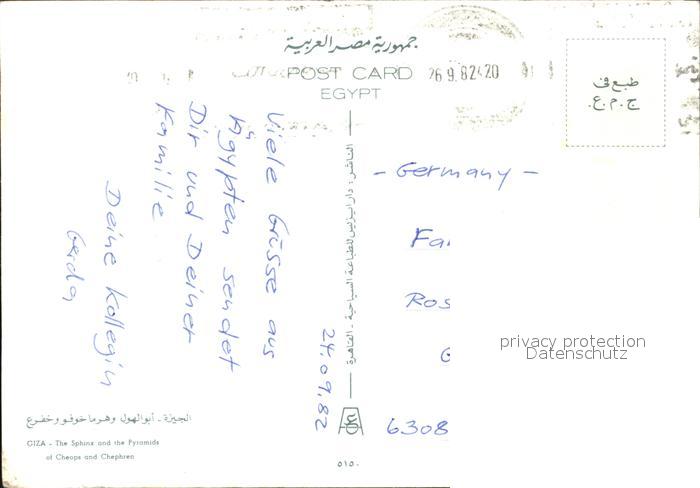 جمهورية مصر العربية
POST CARD
EGYPT
26.9.82 20
طبع فى
ج.م.ع.
24.09.82
Viele Grüsse aus
Ägypten sendet
Dir und Deiner
Familie
Deine Kollegin
Gerda
- Germany -
Fa
Ros
6308
privacy protection
Datenschutz
الناشر: دار ايزيس للطباعة السياحية - القاهرة
الجيزة - أبو الهول وهرما خوفو وخفرع
GIZA - The Sphinx and the Pyramids
of Cheops and Chephren
٥١٥٠